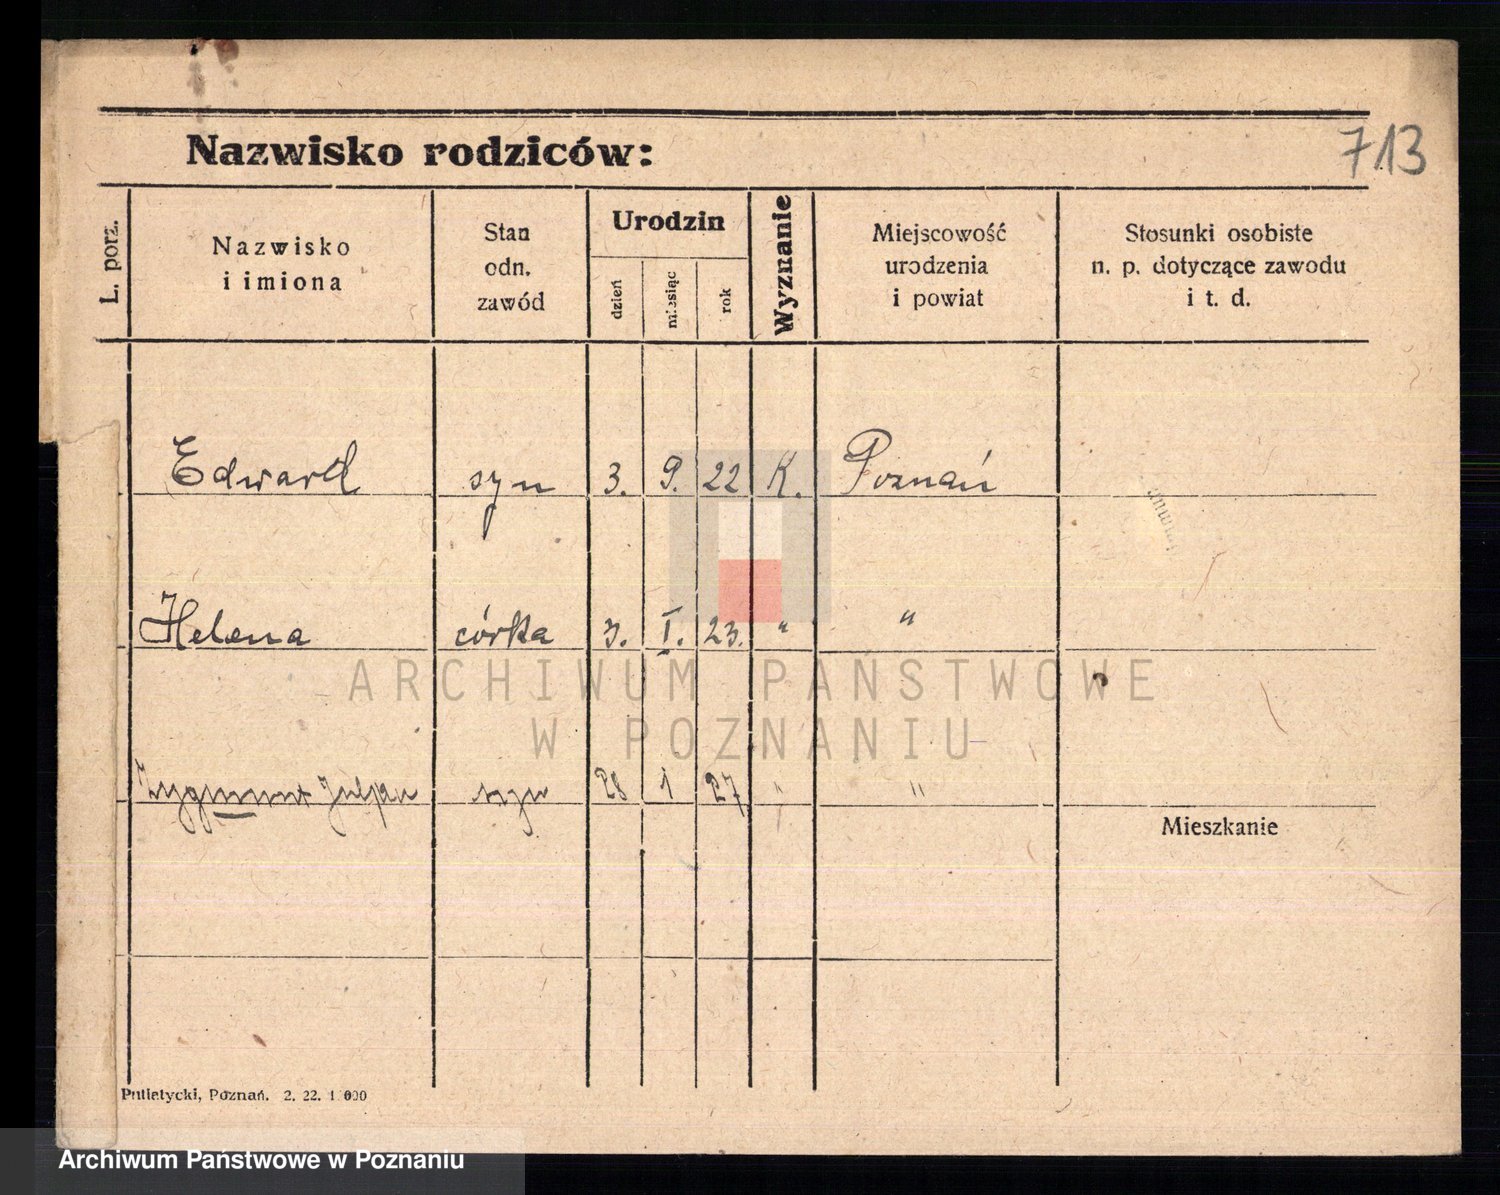 713
Nazwisko rodziców:
L. porz.
Nazwisko
i imiona
Stan
odn.
zawód
Urodzin
dzień
miesiąc
rok
Wyznanie
Miejscowość
urodzenia
i powiat
Stosunki osobiste
n. p. dotyczące zawodu
i t. d.
Edward syn 3. 9. 22 K. Poznań
Helena córka 3. I. 23. " "
ARCHIWUM PAŃSTWOWE
W POZNANIU
Zygmunt Juljan syn 28 1 27 " "
Mieszkanie
Putiatycki, Poznań. 2. 22. 1 000
Archiwum Państwowe w Poznaniu